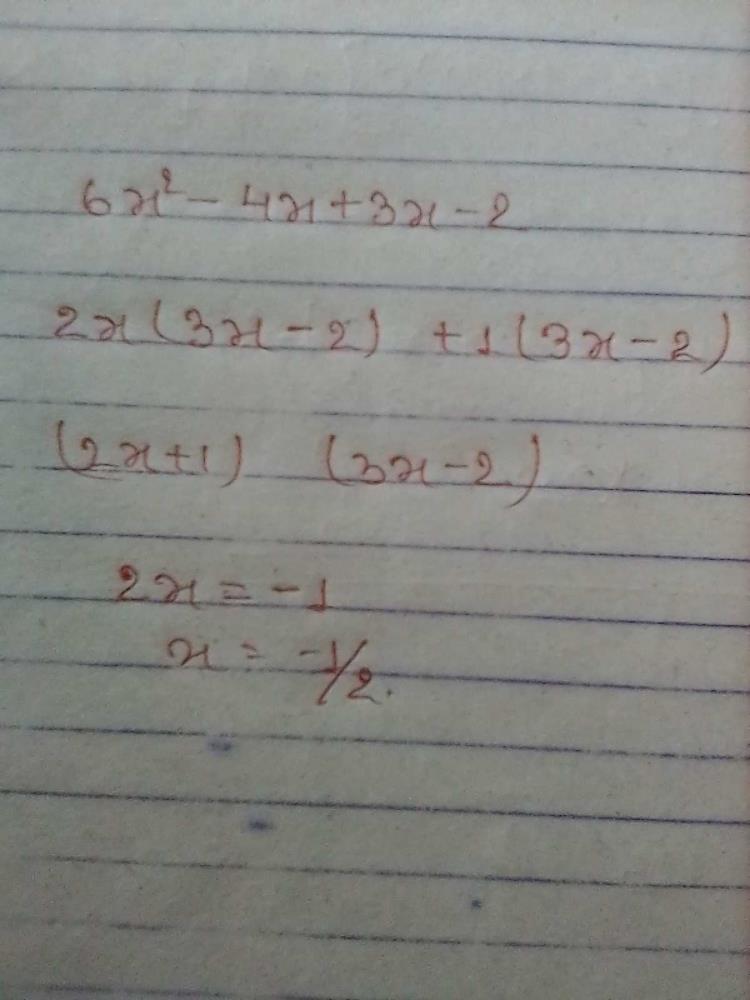 6x² - 4x + 3x - 2
2x (3x - 2) + 1 (3x - 2)
(2x + 1) (3x - 2)
2x = -1
x = -1/2.